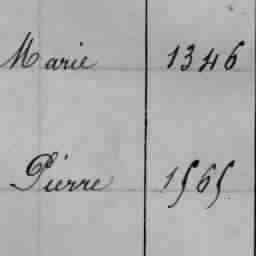 Marie 1346
Pierre 1565